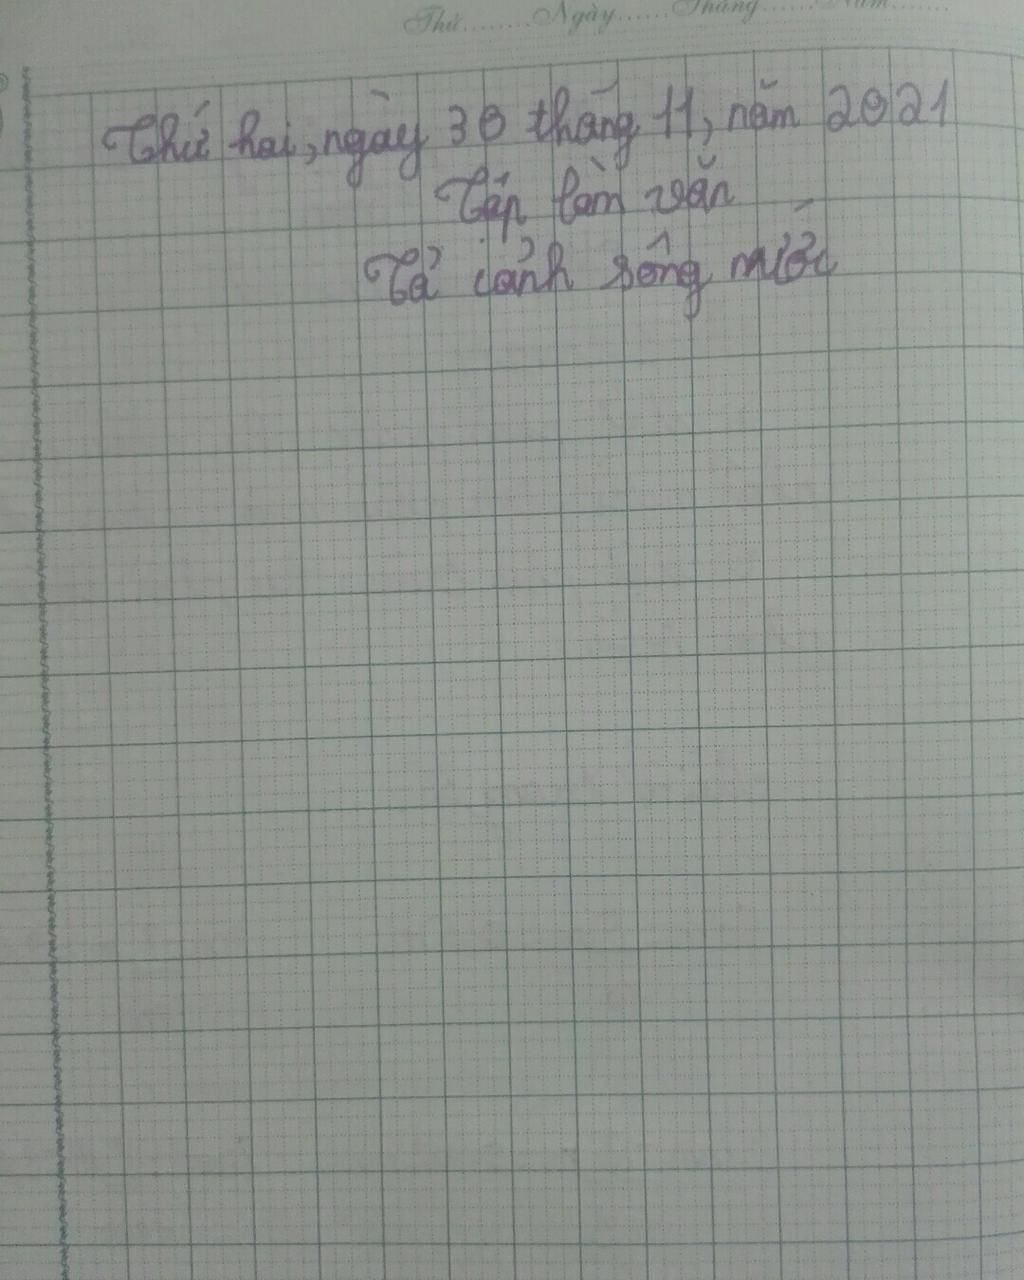 Thứ.......Ngày......Tháng......Năm.......
Thứ hai, ngày 30 tháng 11, năm 2021
Tập làm văn
Tả cảnh sông nước